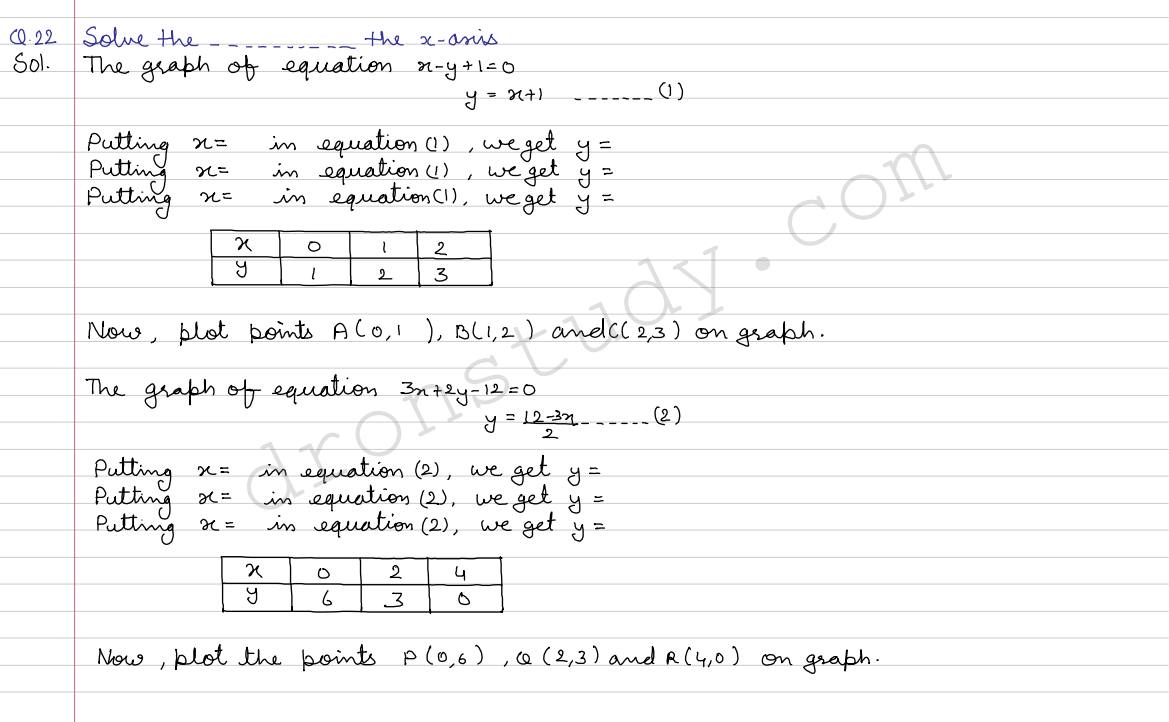 Q.22 Solve the ---------- the x-axis
Sol. The graph of equation x-y+1=0
y = x+1 ------- (1)
Putting x= in equation (1) , we get y =
Putting x= in equation (1) , we get y =
Putting x= in equation (1), we get y =
x 0 1 2
y 1 2 3
Now, plot points A(0,1), B(1,2) and C(2,3) on graph.
The graph of equation 3x+2y-12=0
y = 12-3x/2 ------ (2)
Putting x= in equation (2), we get y =
Putting x= in equation (2), we get y =
Putting x= in equation (2), we get y =
x 0 2 4
y 6 3 0
Now, plot the points P(0,6), Q(2,3) and R(4,0) on graph.
dronstudy.com